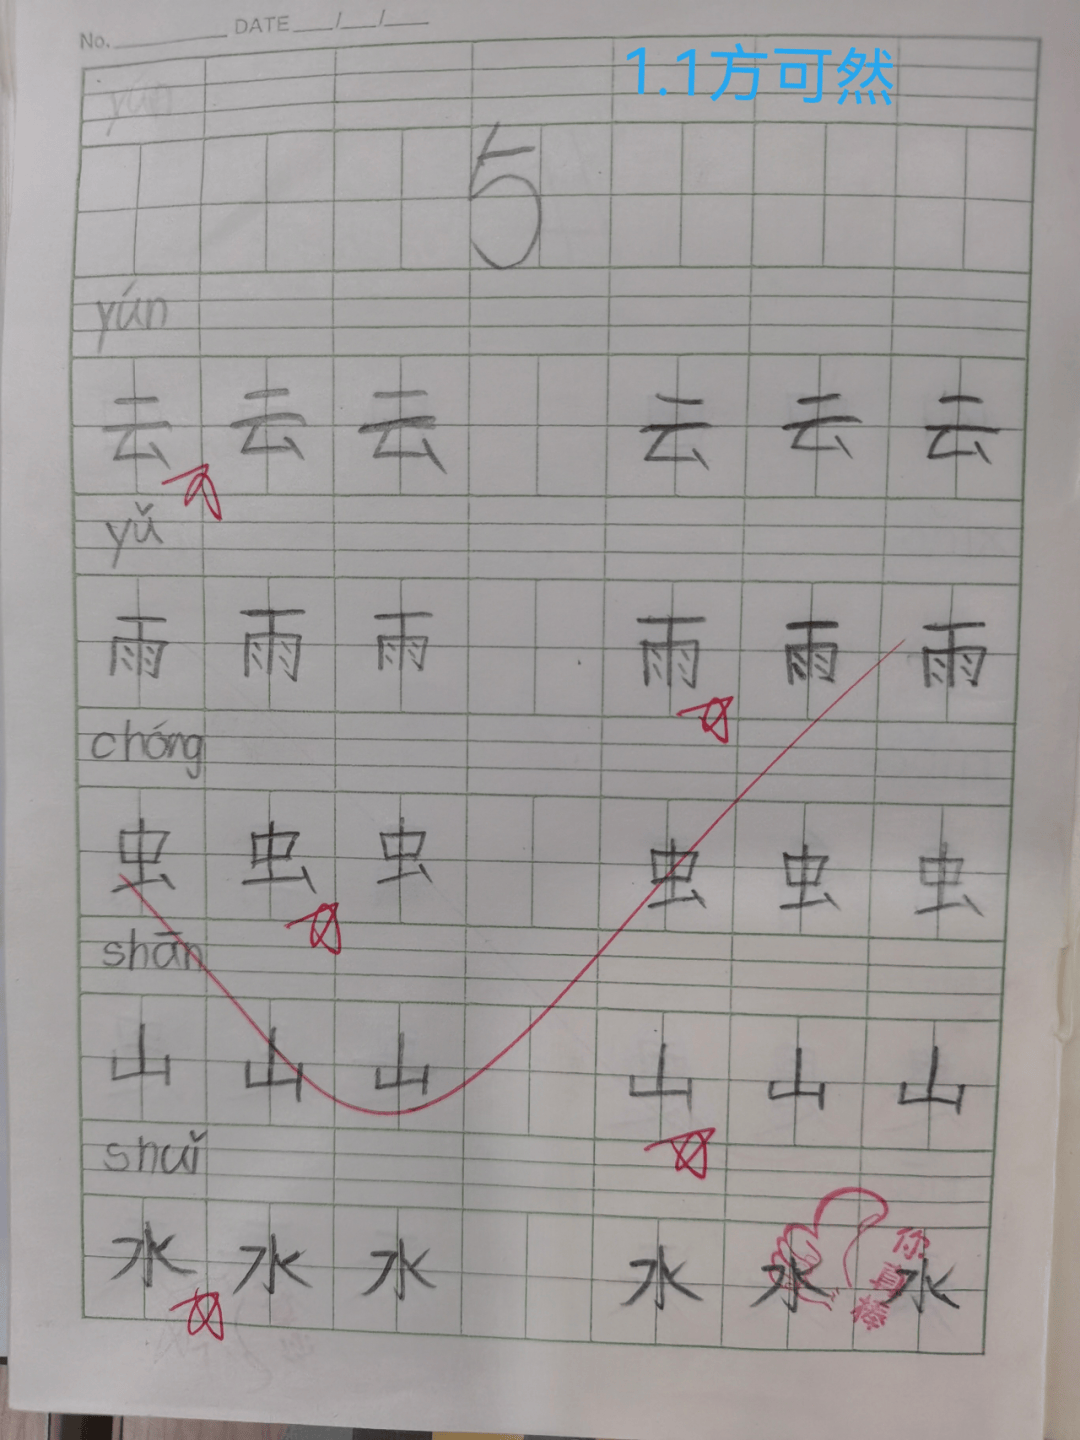 No. DATE / /
1.1方可然
yún
5
yún
云 云 云 云 云 云
yǔ
雨 雨 雨 雨 雨 雨
chóng
虫 虫 虫 虫 虫 虫
shān
山 山 山 山 山 山
shuǐ
水 水 水 水 水 水
你真棒